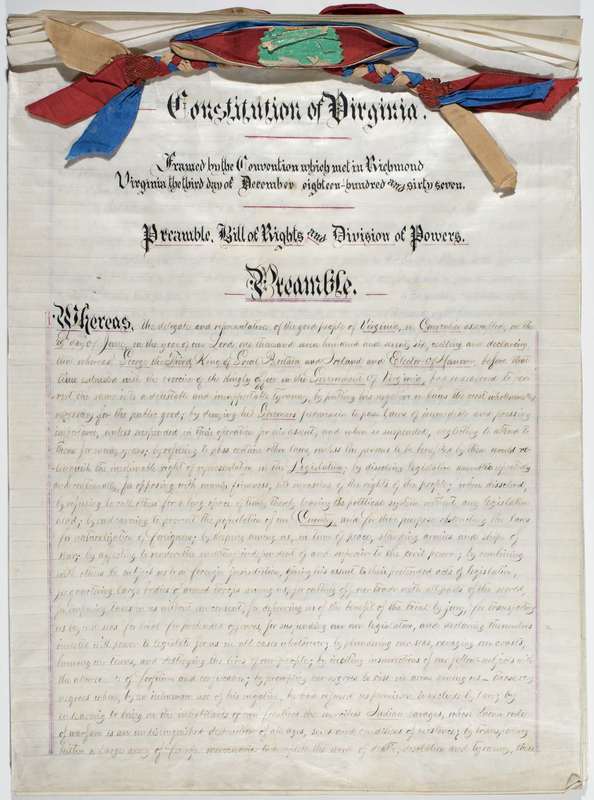 Constitution of Virginia.
Framed by the Convention which met in Richmond
Virginia the third day of December eighteen-hundred and sixty seven.
Preamble, Bill of Rights and Division of Powers.
Preamble.
Whereas, the delegates and representatives of the good people of Virginia, in Convention assembled, on the
29th day of June, in the year of our Lord one thousand seven hundred and seventy six, reciting and declaring
that whereas George the Third, King of Great Britain and Ireland and Elector of Hanover, before that
time intrusted with the exercise of the kingly office in the Government of Virginia, had endeavored to per-
vert the same into a detestable and insupportable tyranny, by putting his negative on laws the most wholesome and
necessary for the public good; by denying his Governors permission to pass laws of immediate and pressing
importance, unless suspended in their operation for his assent, and when so suspended, neglecting to attend to
them for many years; by refusing to pass certain other laws, unless the persons to be benefited by them would re-
linquish the inalienable right of representation in the Legislature; by dissolving legislative assemblies repeatedly
and continually, for opposing with manly firmness, his invasions of the rights of the people; when dissolved,
by refusing to call others for a long space of time, thereby leaving the political system without any legislative
head; by endeavoring to prevent the population of our Country, and for that purpose obstructing the laws
for naturalization of foreigners; by keeping among us, in time of peace, standing armies and ships of
war; by affecting to render the military independent of and superior to the civil power; by combining
with others to subject us to a foreign jurisdiction, giving his assent to their pretended acts of legislation,
for quartering large bodies of armed troops among us, for cutting off our trade with all parts of the world,
for imposing taxes on us without our consent, for depriving us of the benefit of the trial by jury, for transporting
us beyond seas for trial for pretended offences, for suspending our own legislatures, and declaring themselves
invested with power to legislate for us in all cases whatsoever; by plundering our seas, ravaging our coasts,
burning our towns, and destroying the lives of our people; by inciting insurrections of our fellow-subjects with
the allurements of forfeiture and confiscation; by prompting our negroes to rise in arms among us— those very
negroes whom, by an inhuman use of his negative, he had refused us permission to exclude by law; by
endeavoring to bring on the inhabitants of our frontiers the merciless Indian savages, whose known rule
of warfare is an undistinguished destruction of all ages, sexes and conditions of existence; by transporting
hither a large army of foreign mercenaries to complete the work of death, desolation and tyranny, then